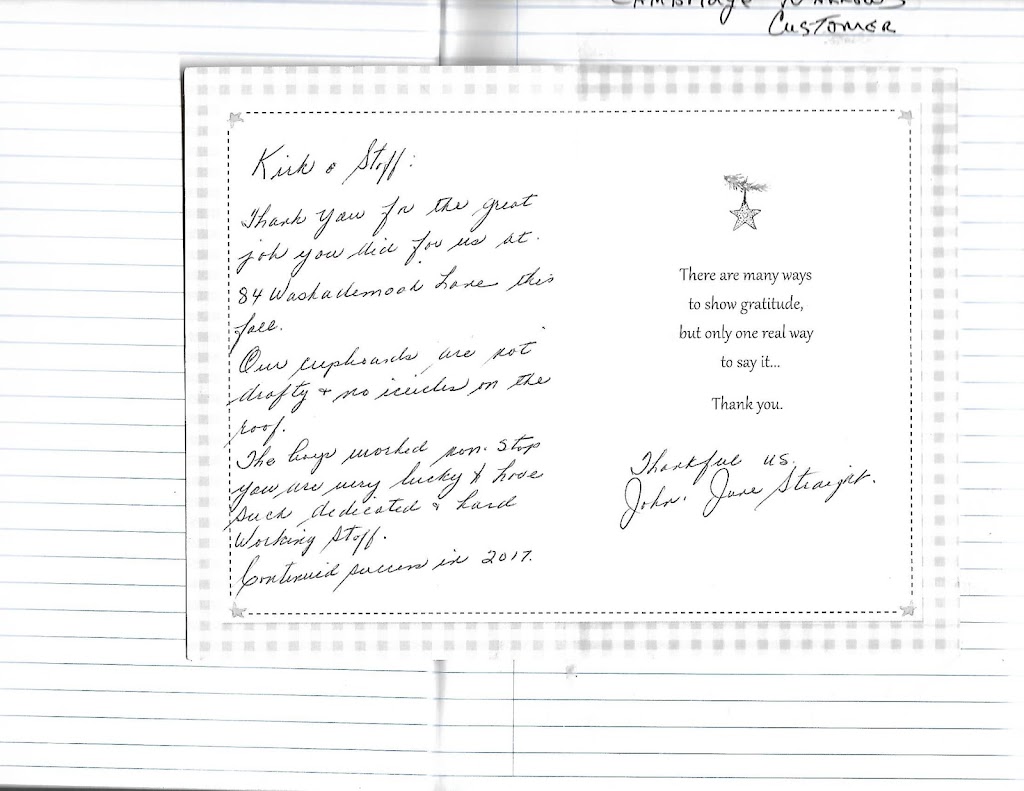 Cambridge Narrows
Customer
Kirk & Staff:
Thank you for the great
job you did for us at.
84 Washademoak Lane this
fall.
Our cupboards are not
drafty & no icicles on the
roof.
The boys worked non-stop
you are very lucky to have
such dedicated & hard
working staff.
Continued success in 2017.
There are many ways
to show gratitude,
but only one real way
to say it...
Thank you.
Thankful us.
John. June Straight.